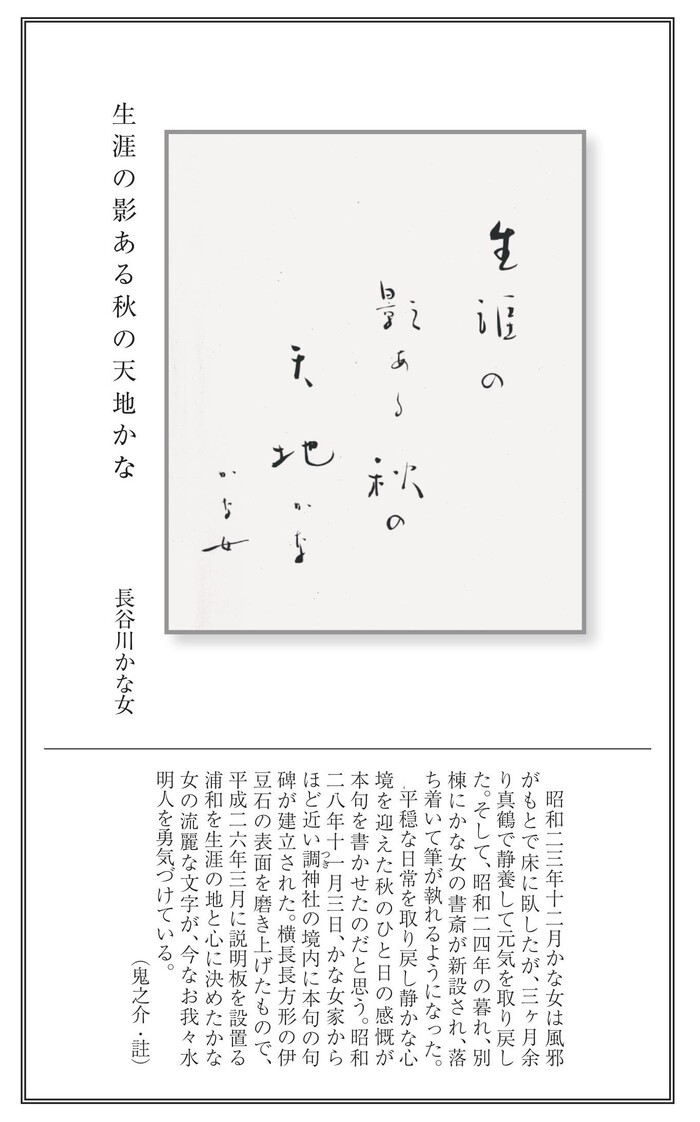 生涯の
影ある秋の
天地かな
かな女
生涯の影ある秋の天地かな
長谷川かな女
昭和二三年十二月かな女は風邪
がもとで床に臥したが、三ヶ月余
り真鶴で静養して元気を取り戻し
た。そして、昭和二四年の暮れ、別
棟にかな女の書斎が新設され、落
ち着いて筆が執れるようになった。
平穏な日常を取り戻し静かな心
境を迎えた秋のひと日の感慨が
本句を書かせたのだと思う。昭和
二八年十一月三日、かな女家から
ほど近い調神社の境内に本句の句
碑が建立された。横長長方形の伊
豆石の表面を磨き上げたもので、
平成二六年三月に説明板を設置る
浦和を生涯の地と心に決めたかな
女の流麗な文字が、今なお我々水
明人を勇気づけている。
（鬼之介・註）